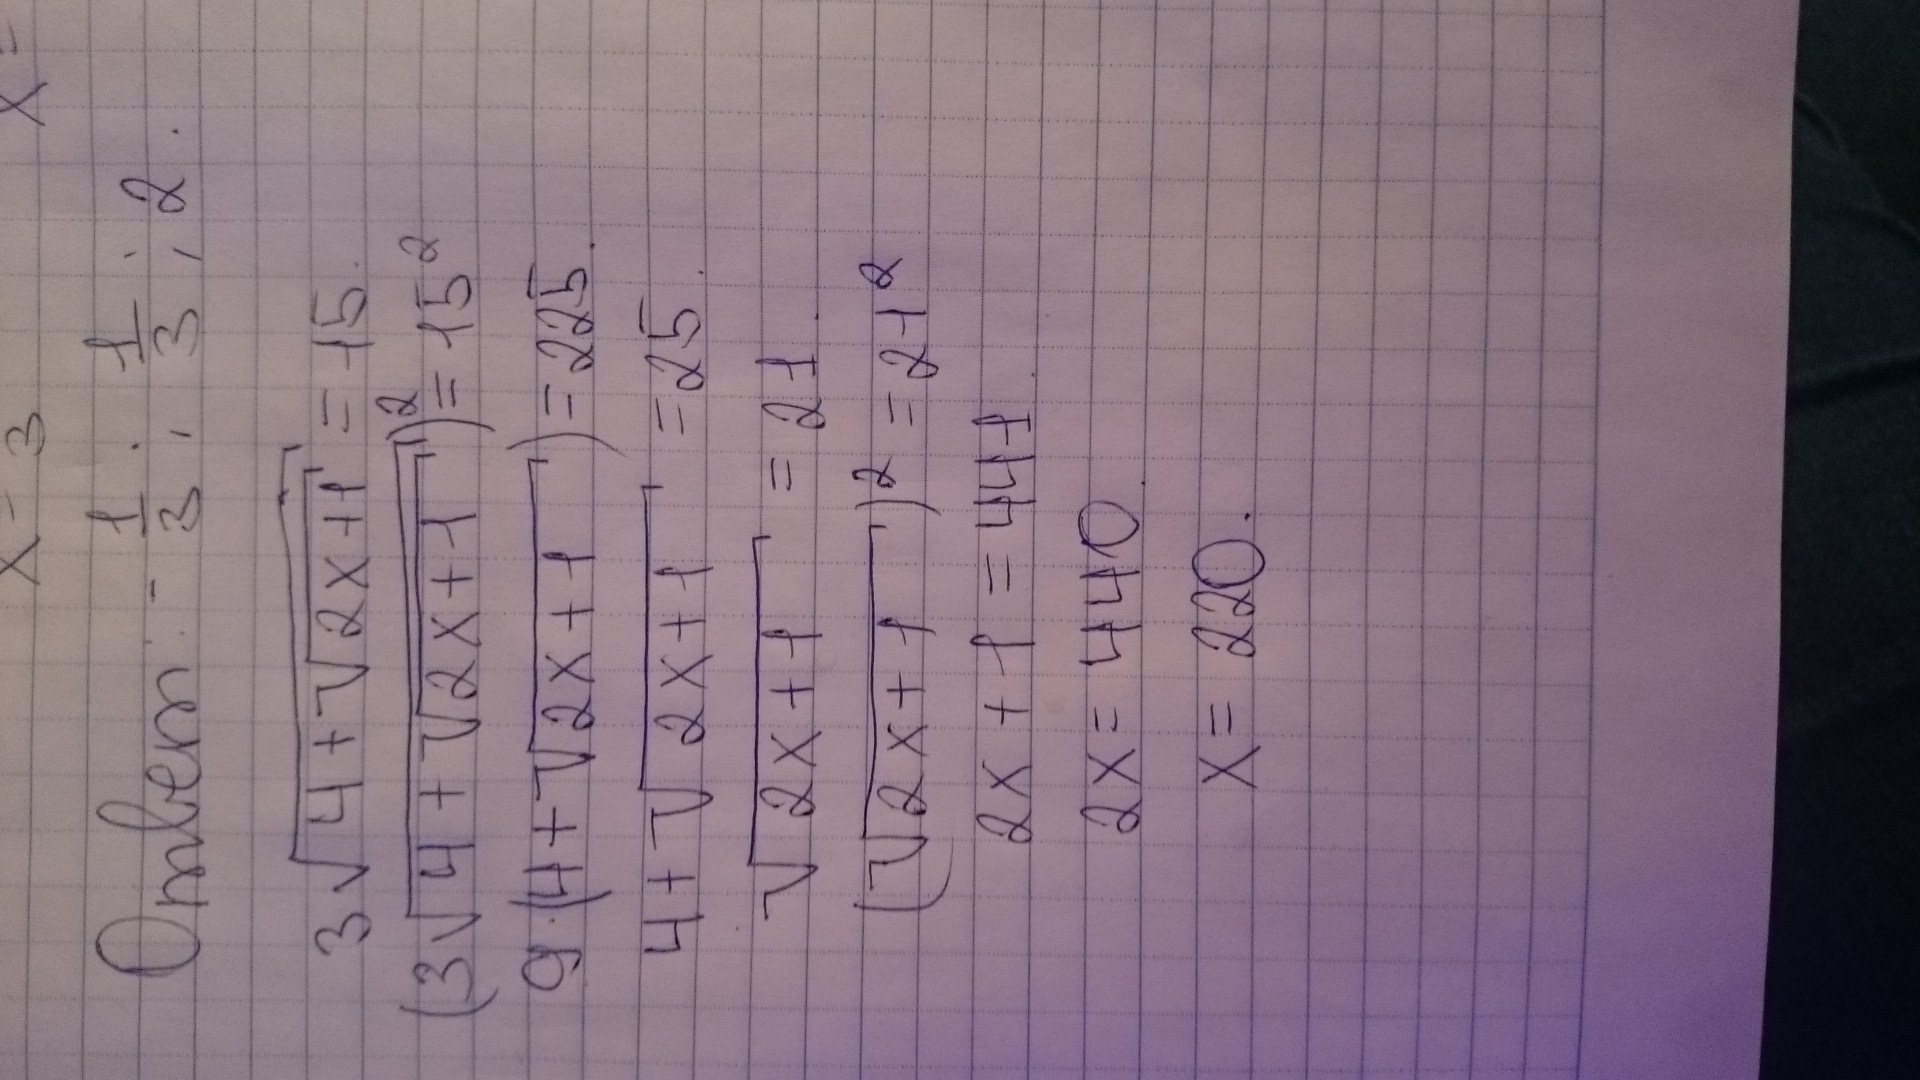 x = 3 x =
Ответ: - 1/3 ; 1/3 ; 2.
3√(4+√(2x+1)) = 15.
(3√(4+√(2x+1)))² = 15²
9·(4+√(2x+1)) = 225.
4+√(2x+1) = 25.
√(2x+1) = 21.
(√(2x+1))² = 21²
2x+1 = 441.
2x = 440.
x = 220.